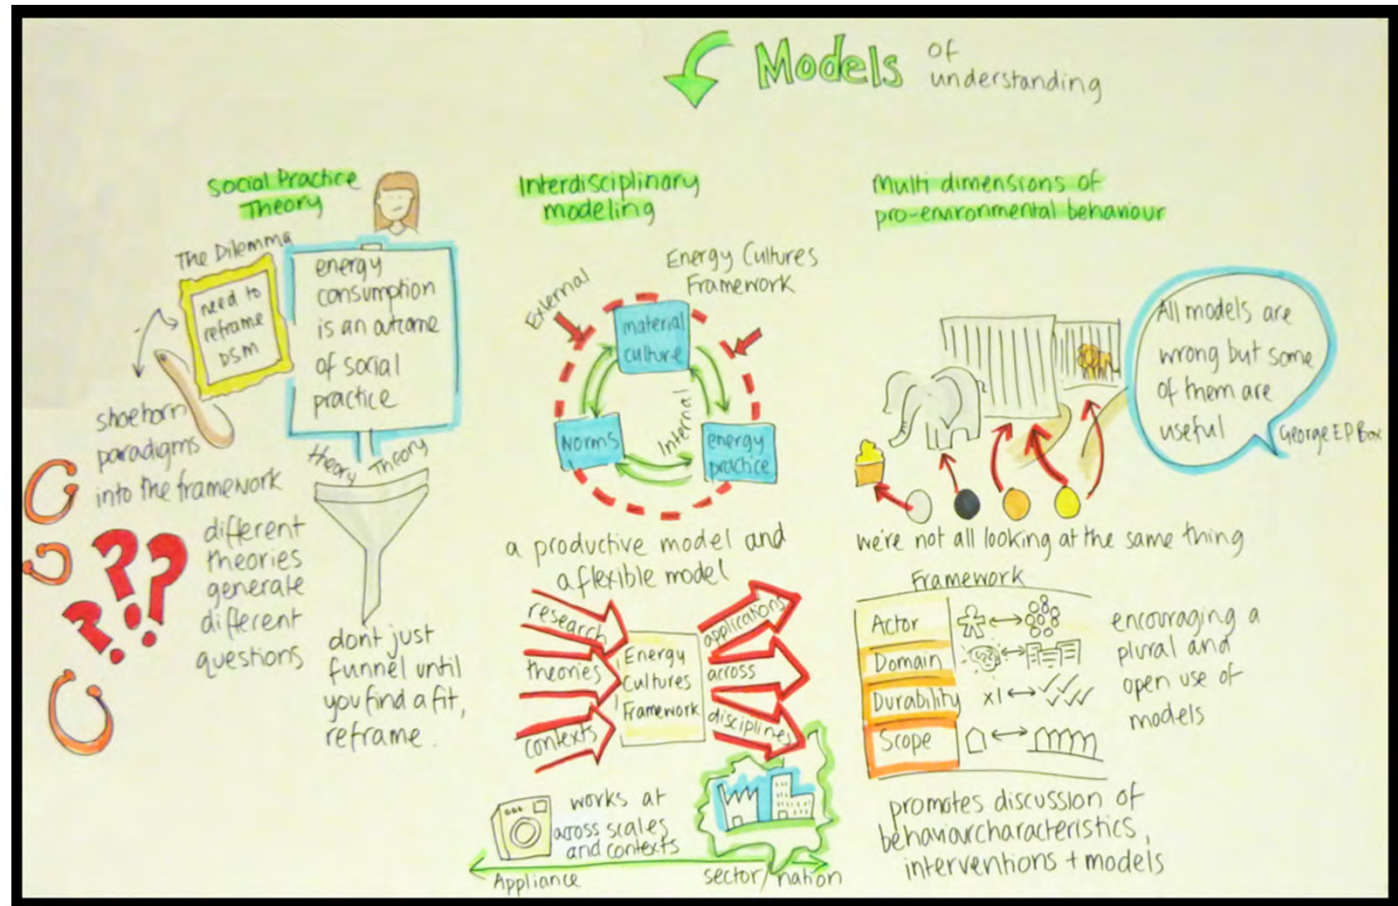 Models of
understanding
Social Practice
Theory
The Dilemma
need to
reframe
DSM
energy
consumption
is an outcome
of social
practice
shoehorn
paradigms
into the framework
theory Theory
different
theories
generate
different
questions
dont just
funnel until
you find a fit,
reframe.
Interdisciplinary
modeling
Energy Cultures
Framework
External
material
culture
Internal
Norms
energy
practice
a productive model and
a flexible model
research
theories
contexts
Energy
Cultures
Framework
applications
across
disciplines
works at
across scales
and contexts
Appliance
sector/nation
Multi dimensions of
pro-environmental behaviour
All models are
wrong but some
of them are
useful
George EP Box
we're not all looking at the same thing
Framework
Actor
Domain
Durability
x1
Scope
encouraging a
plural and
open use of
models
promotes discussion of
behaviour characteristics,
interventions + models